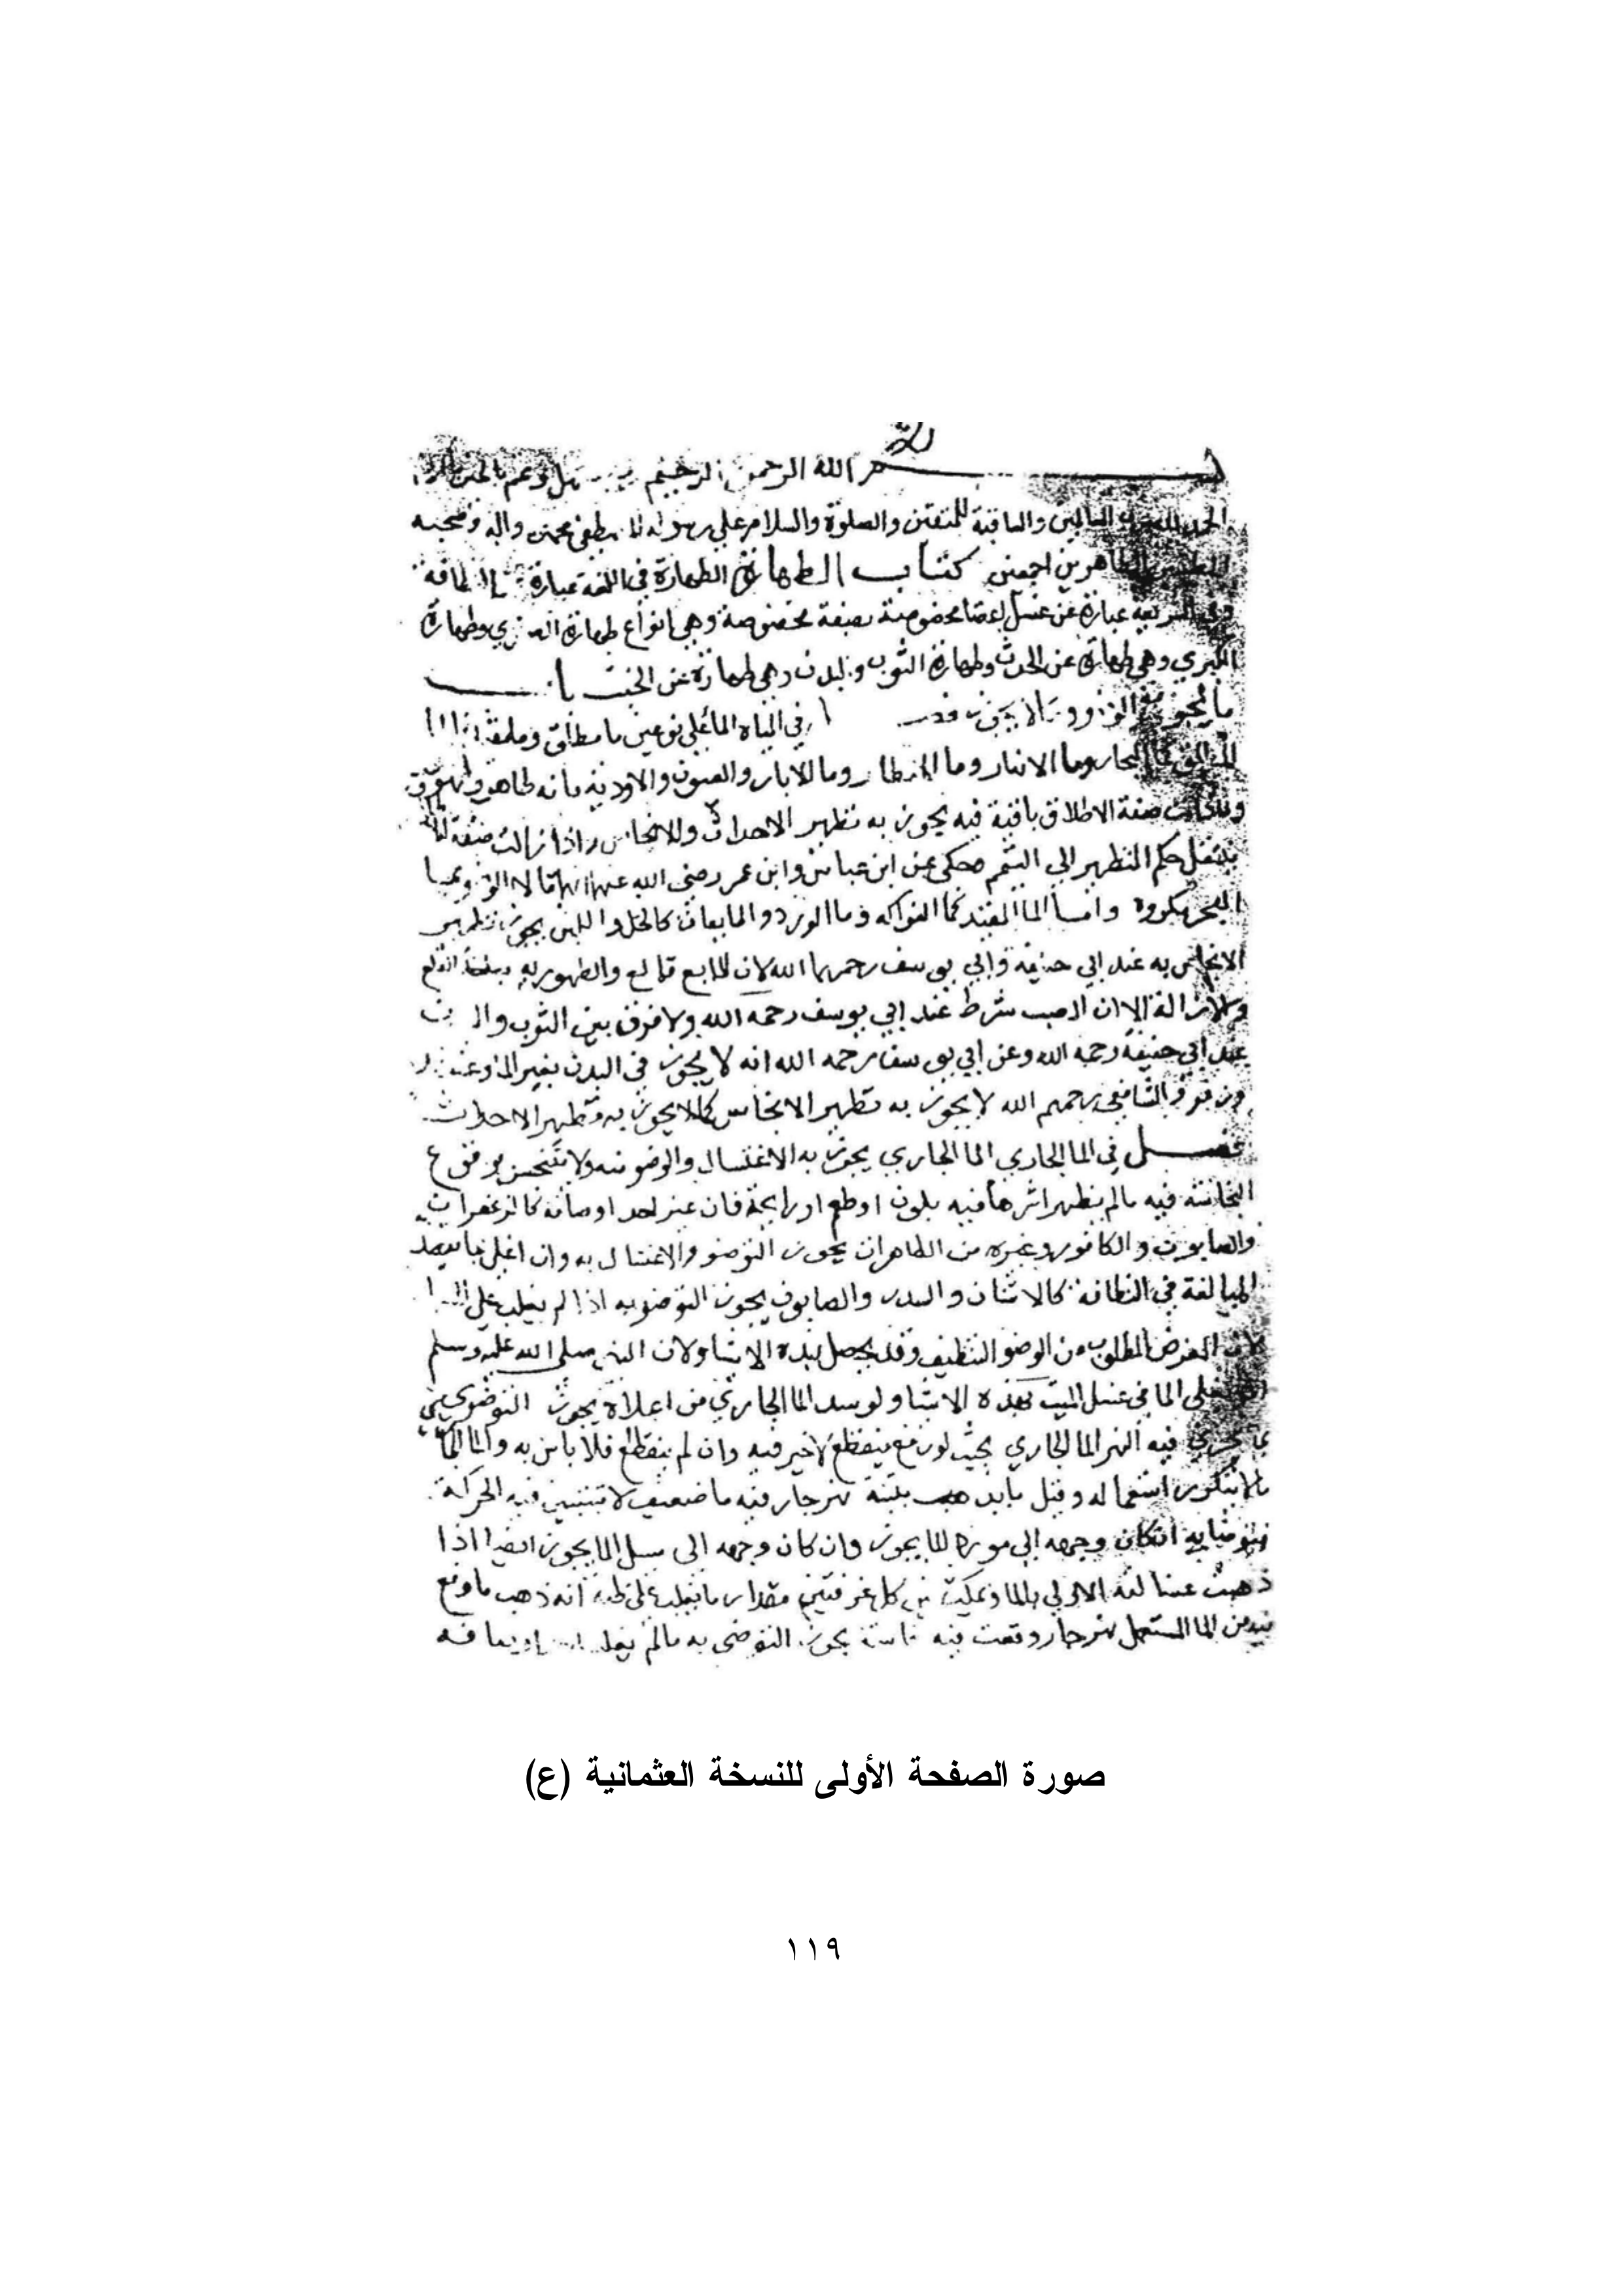 بسم الله الرحمن الرحيم
الحمد لله رب العالمين والعاقبة للمتقين والصلوة والسلام علي رسوله المصطفي محمد واله وصحبه
الطاهرين اجمعين كتاب الطهارة الطهارة في اللغة عبارة عن النظافة
وفي الشريعة عبارة عن غسل اعضا مخصوصة بصفة مخصوصة وهي انواع طهارة الصغري وطهارة
الكبري وهي طهارة عن الحدث وطهارة الثوب والبدن وهي طهارة عن الخبث باب
ما يجوز به الوضوء وما لا يجوز في المياه الما علي نوعين ما مطلق ومقيد اما
المطلق كما البحار وما الانهار وما الامطار وما الابار والعيون والاودية فانه طاهر وطهور
صفة الاطلاق باقية فيه يجوز به تطهير الاحداث والانجاس واذا زالت صفة
ينتقل حكم التطهير الي التيمم محكي عن ابن عباس وابن عمر رضي الله عنهما انهما قالا الوضو بما
البحر مكروه واما الما المقيد كما الفواكه وما الورد والمايعات كالخل واللبن يجوز تطهير
الانجاس به عند ابي حنيفة وابي يوسف رحمهما الله لان المايع قالع والطهورية
والازالة الا ان الصب شرط عند ابي يوسف رحمه الله ولا فرق بين الثوب والبدن
عند ابي حنيفة رحمه الله وعن ابي يوسف رحمه الله انه لا يجوز في البدن بغير الما وعند
وزفر والشافعي رحمهم الله لا يجوز به تطهير الانجاس كما لا يجوز به تطهير الاحداث
فصل في الما الجاري الما الجاري يجوز به الاغتسال والوضو منه ولا يتنجس بوقوع
النجاسة فيه مالم يظهر اثرها فيه بلون او طعم او رايحة فان غير احد اوصافه كالزعفران
والصابون والكافور وغيره من الطاهرات يجوز التوضو والاغتسال به وان اغلي بما يقصد
المبالغة في النظافة كالاشنان والسدر والصابون يجوز التوضو به اذا لم يغلب علي
لان الغرض المطلوب من الوضو التنظيف وقد يحصل بهذه الاشيا ولان النبي صلي الله عليه وسلم
الما في غسل الميت بهذه الاشيا ولو سد الما الجاري من اعلاه يجوز التوضوي
يجري فيه النهر الما الجاري بحيث لو رفع ينقطع لاخير فيه وان لم ينقطع فلا باس به والما
مالا يتكرر استعماله وقيل ما يذهب بتبنة نهر جار فيه ما ضعيف لا تتبين فيه الحركة
يتوضا به ان كان وجهه الي مورد الما يجوز وان كان وجهه الي مسيل الما يجوز ايضا اذا
ذهبت غسالته الاولي بالما ويمكث بين كل غرفتين مقدار ما يغلب علي ظنه انه ذهب ما وقع
فيه من الما المستعمل نهر جار وقعت فيه نجاسة يجوز التوضي به مالم
صورة الصفحة الأولى للنسخة العثمانية (ع)
١١٩